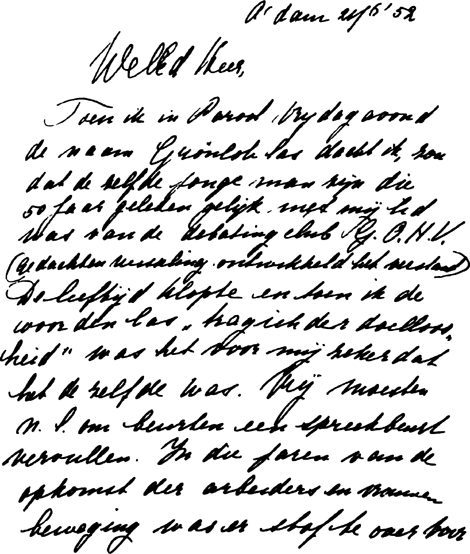 A'dam 21/6'52
WelEd Heer,
Toen ik in Parool, Vrydagavond
de naam Grönloh las dacht ik, zou
dat de zelfde jonge man zijn die
50 jaar geleden gelijk met mij lid
was van de debating club G. O. H. V.
(gedachten wisseling ontwikkeld het verstand)
De leeftijd klopte en toen ik de
woorden las „tragick der doelloos-
heid" was het voor mij zeker dat
het de zelfde was. Wij moesten
n.l. om beurten een spreekbeurt
vervullen. In die jaren van de
opkomst der arbeiders en vrouwen
beweging was er stof te over voor